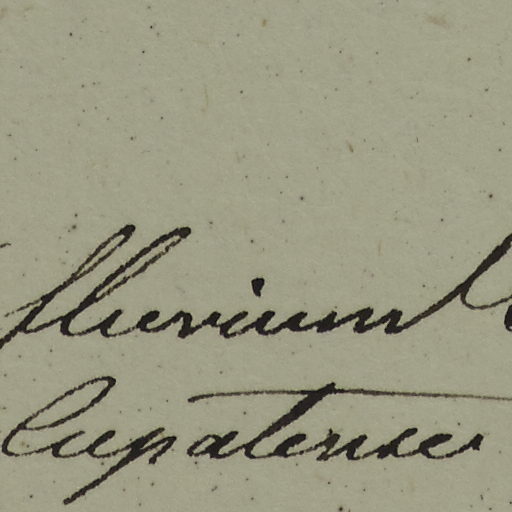 fluvium
Cupatense